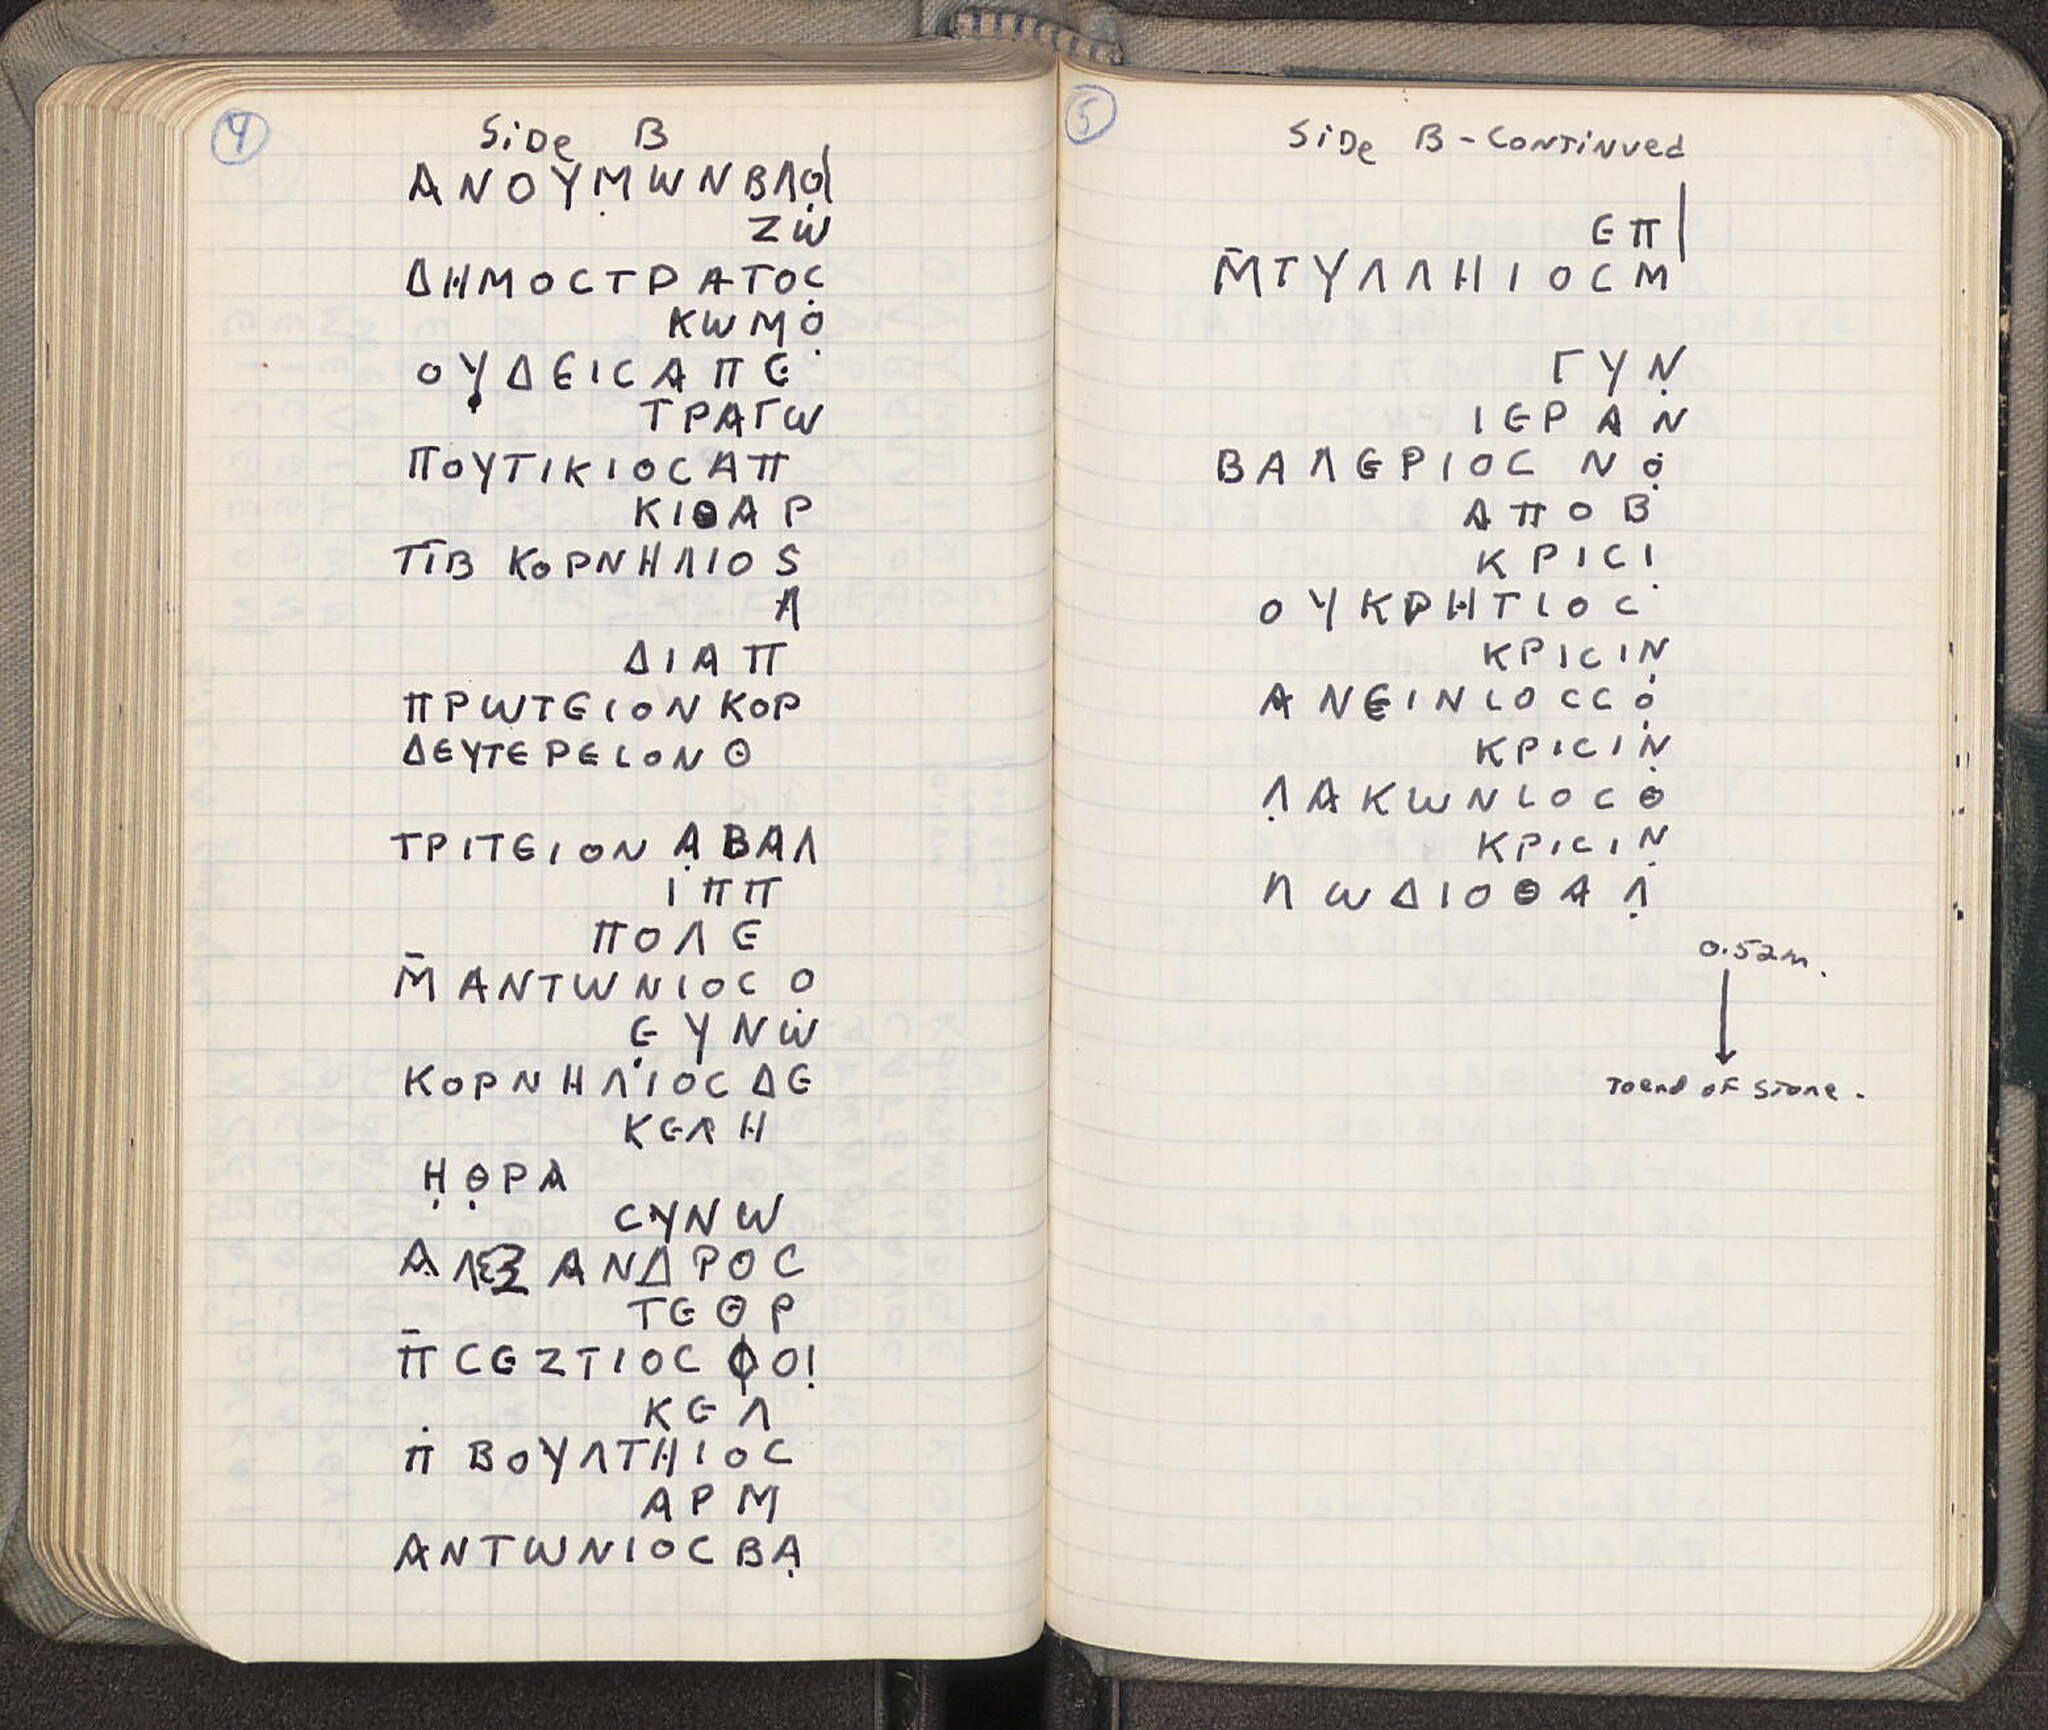 4
Side B
ΑΝΟΥΜ̣ωΝΒΛΟ̣
Ζω
ΔΗΜΟϹΤΡΑΤΟϹ̣
ΚωΜΟ̣
ΟΥΔΕΙϹΑΠΕ
ΤΡΑΓω
ΠΟΥΤΙΚΙΟϹΑΠ
ΚΙΘΑΡ
ΤΙ̅Β ΚΟΡΝΗΛΙΟS
Λ
ΔΙΑΠ
ΠΡωΤΕΙΟΝ ΚΟΡ
ΔΕΥΤΕΡΕΙΟΝ Θ
ΤΡΙΤΕΙΟΝ Α̣ΒΑΛ
ΙΠΠ
ΠΟΛΕ
Μ̅ ΑΝΤωΝΙΟϹ Ο̣
Ε̣ΥΝω
ΚΟΡΝΗΛΙΟϹ ΔΕ
ΚΕΛΗ
Η̣Θ̣ΡΑ
ϹΥΝω
Α̣ΛΕΞΑΝΔΡΟϹ
ΤΕΘΡ
Π̅ ϹΕΖΤΙΟϹ ΦΟΙ̣
ΚΕΛ
Π̇ ΒΟΥΛΤΗΙΟϹ
ΑΡΜ
ΑΝΤωΝΙΟϹ ΒΑ̣
5
Side B - Continued
ΕΠ
Μ̅ΤΥΛΛΗΙΟϹ Μ
ΓΥΝ̣
ΙΕΡΑΝ
ΒΑΛΕΡΙΟϹ ΝΟ̣
ΑΠΟΒ
ΚΡΙϹΙ̣
ΟΥΚΡΗΤΙΟϹ
ΚΡΙϹΙΝ̣
ΑΝΕΙΝΙΟϹϹΟ̣
ΚΡΙϹΙΝ̣
Λ̣ΑΚωΝΙΟϹΘ
ΚΡΙϹΙΝ̣
ΛωΔΙΟΘΑΛ̣
0.52m.
To end of stone.